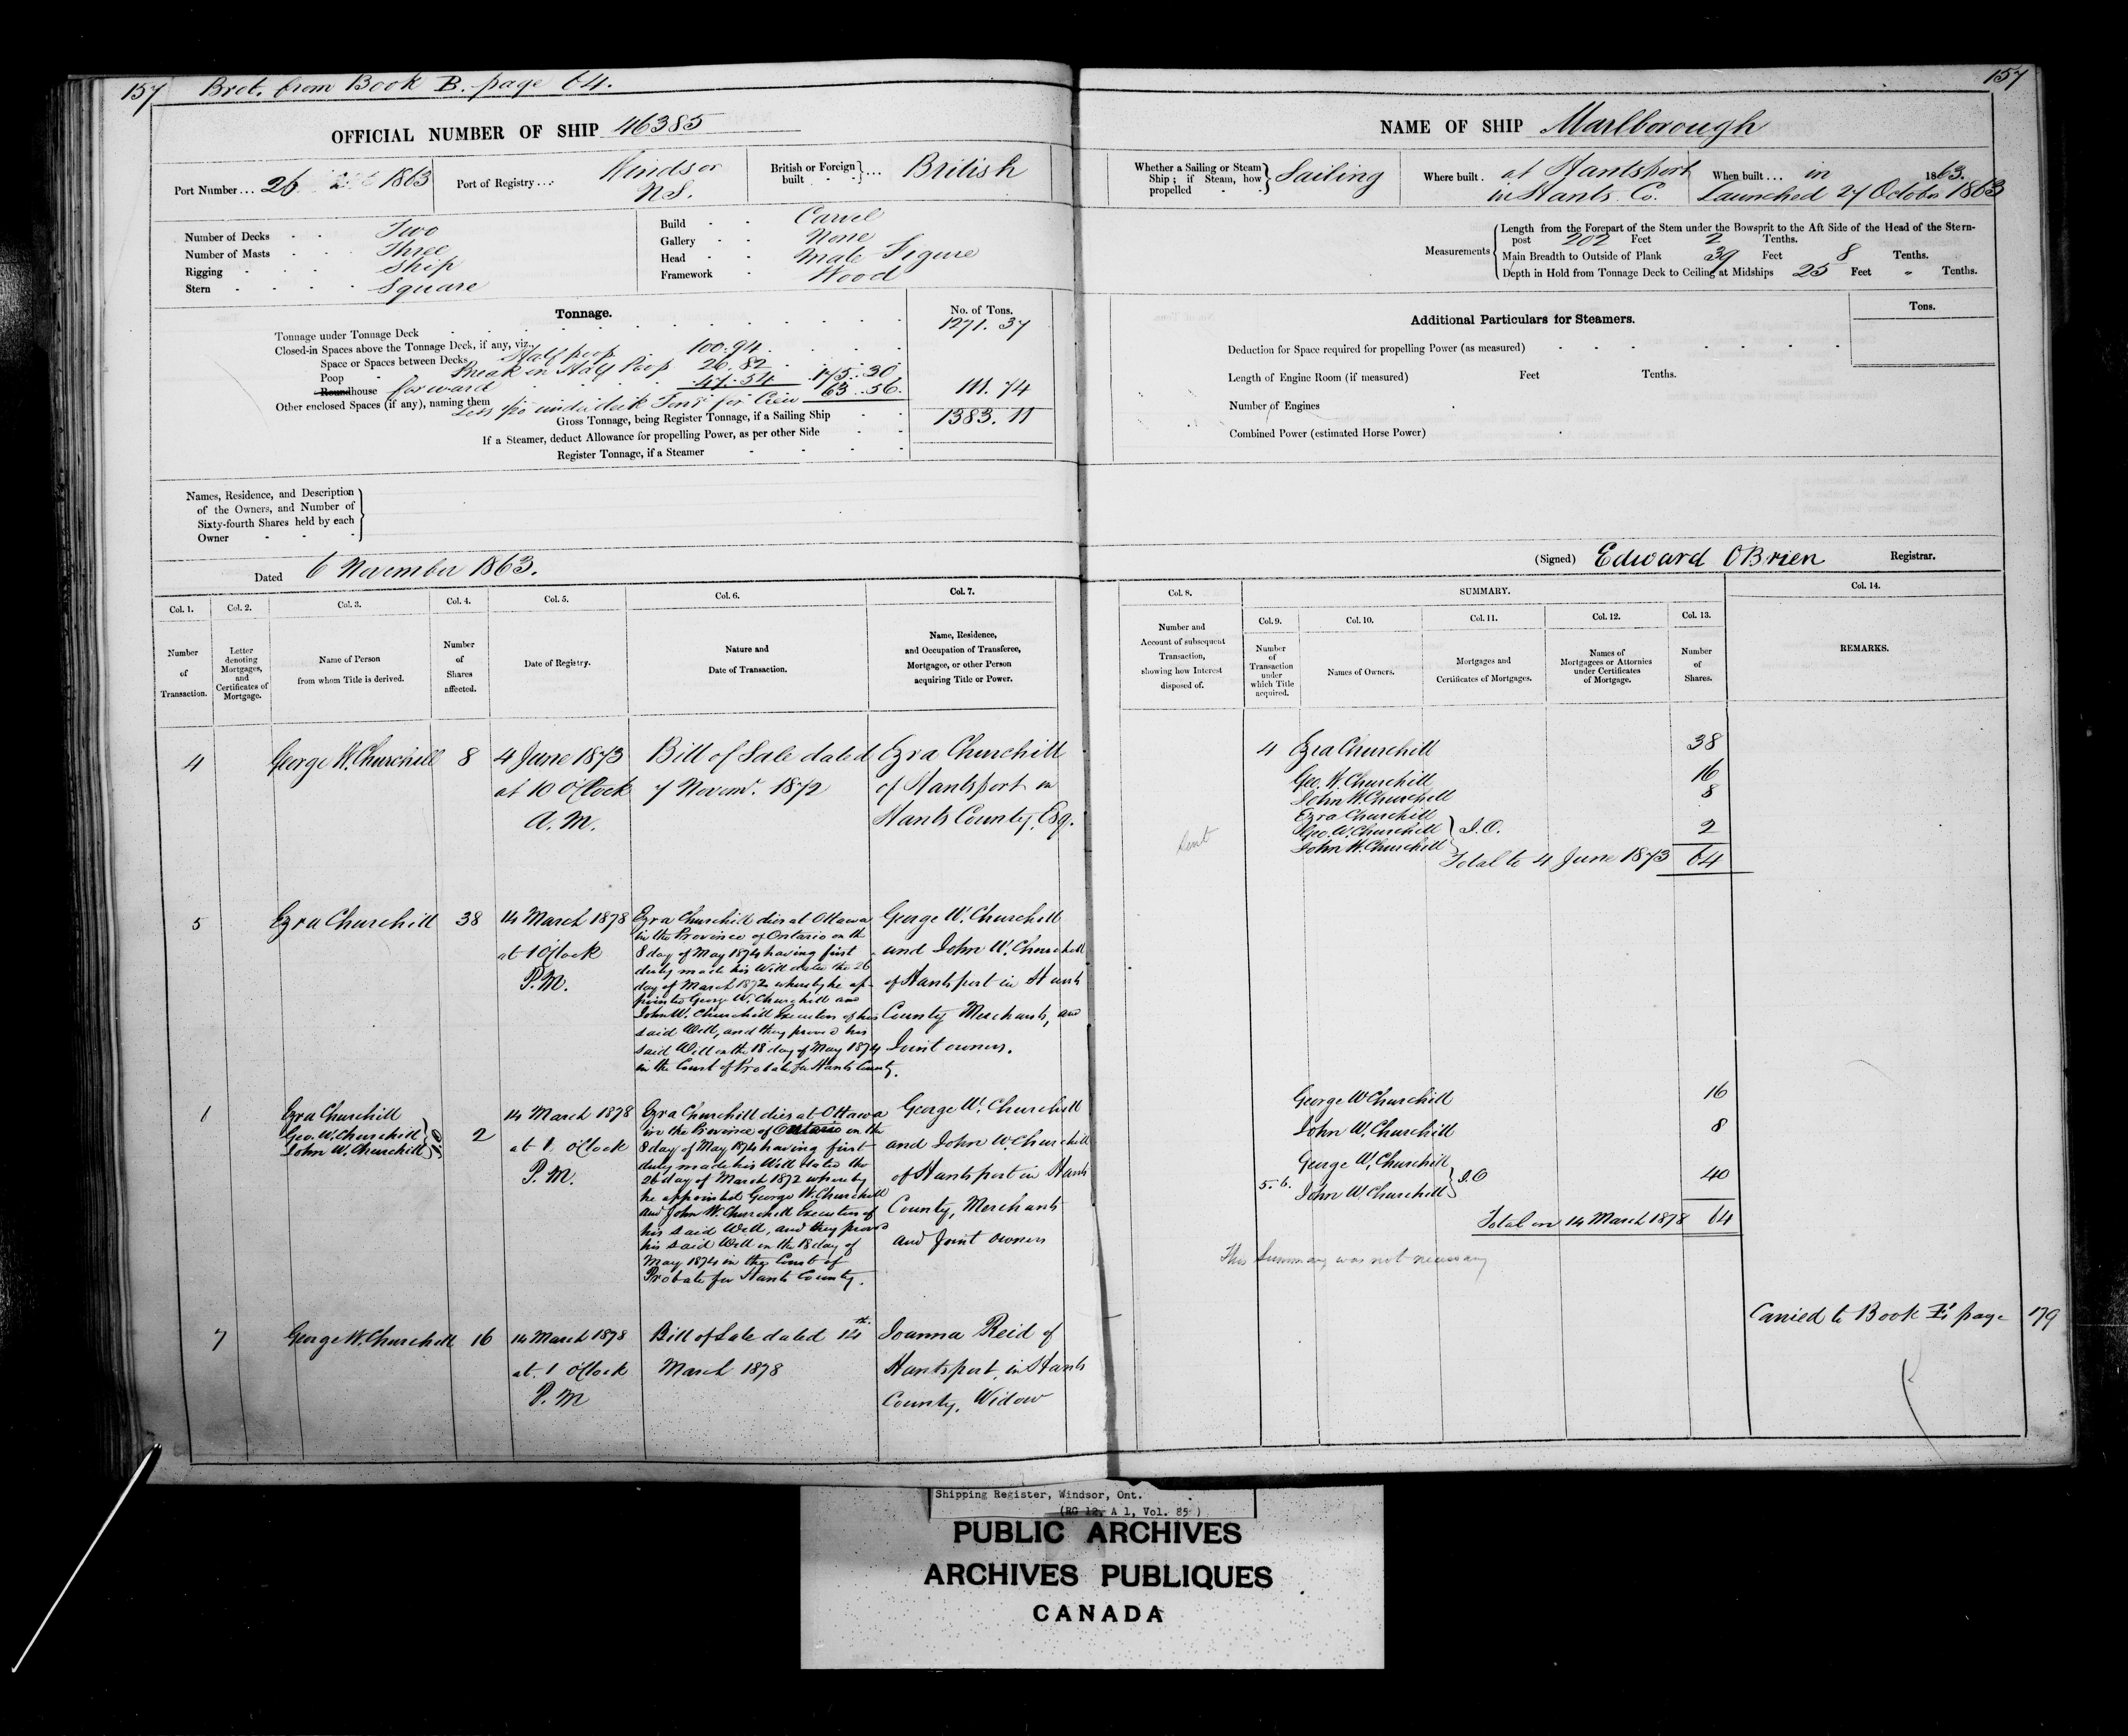 157 Brot. from Book B. page 64.
157
OFFICIAL NUMBER OF SHIP 46385
NAME OF SHIP Marlborough
Port Number... 26 1863
Port of Registry... Windsor
N.S.
British or Foreign built } ... British
Whether a Sailing or Steam Ship; if Steam, how propelled } Sailing
Where built. at Hantsport
in Hants Co.
When built... in 1863.
Launched 27 October 1863
Number of Decks Two
Number of Masts Three
Rigging Ship
Stern Square
Build Carvel
Gallery None
Head Male Figure
Framework Wood
Measurements
Length from the Forepart of the Stem under the Bowsprit to the Aft Side of the Head of the Stern-
post 202 Feet 2 Tenths.
Main Breadth to Outside of Plank 39 Feet 8 Tenths.
Depth in Hold from Tonnage Deck to Ceiling at Midships 25 Feet " Tenths.
Tonnage.
No. of Tons.
Tonnage under Tonnage Deck 1271.37
Closed-in Spaces above the Tonnage Deck, if any, viz.
Space or Spaces between Decks Half poop 100.94
Poop Break in Half Poop 26.82
Roundhouse forward 47.54 175.30
Other enclosed Spaces (if any), naming them Less under deck for Crew 63.56. 111.74
Gross Tonnage, being Register Tonnage, if a Sailing Ship 1383.11
If a Steamer, deduct Allowance for propelling Power, as per other Side
Register Tonnage, if a Steamer
Additional Particulars for Steamers.
Tons.
Deduction for Space required for propelling Power (as measured)
Length of Engine Room (if measured) Feet Tenths.
Number of Engines
Combined Power (estimated Horse Power)
Names, Residence, and Description
of the Owners, and Number of
Sixty-fourth Shares held by each
Owner
Dated 6 November 1863.
(Signed) Edward OBrien Registrar.
Col. 1.
Number
of
Transaction.
Col. 2.
Letter
denoting
Mortgages,
and
Certificates of
Mortgage.
Col. 3.
Name of Person
from whom Title is derived.
Col. 4.
Number
of
Shares
affected.
Col. 5.
Date of Registry.
Col. 6.
Nature and
Date of Transaction.
Col. 7.
Name, Residence,
and Occupation of Transferee,
Mortgagee, or other Person
acquiring Title or Power.
Col. 8.
Number and
Account of subsequent
Transaction,
showing how Interest
disposed of.
SUMMARY.
Col. 9.
Number
of
Transaction
under
which Title
acquired.
Col. 10.
Names of Owners.
Col. 11.
Mortgages and
Certificates of Mortgages.
Col. 12.
Names of
Mortgagees or Attornies
under Certificates
of Mortgage.
Col. 13.
Number
of
Shares.
Col. 14.
REMARKS.
4
George W. Churchill
8
4 June 1873
at 10 O'Clock
A.M.
Bill of Sale dated
7 Novemr. 1872
Ezra Churchill
of Hantsport in
Hants County, Esq.
4 Ezra Churchill 38
Geo. W. Churchill 16
John W. Churchill 8
Ezra Churchill
Geo. W. Churchill } J.O. 2
John W. Churchill
Total to 4 June 1873 64
5
Ezra Churchill
38
14 March 1878
at 1 O'Clock
P.M.
Ezra Churchill dies at Ottawa
in the Province of Ontario on the
8 day of May 1874 having first
duly made his Will dated the 26
day of March 1872 whereby he ap-
pointed George W. Churchill and
John W. Churchill Executors of his
said Will, and they proved his
said Will on the 18 day of May 1874
in the Court of Probate for Hants County.
George W. Churchill
and John W. Churchill
of Hantsport in Hants
County Merchants, and
Joint owners.
1
Ezra Churchill
Geo. W. Churchill
John W. Churchill } J.O
2
14 March 1878
at 1 O'Clock
P.M.
Ezra Churchill dies at Ottawa
in the Province of Ontario on the
8 day of May 1874 having first
duly made his Will dated the
26 day of March 1872 whereby
he appointed George W. Churchill
and John W. Churchill Executors of
his said Will, and they proved
his said Will on the 18 day of
May 1874 in the Court of
Probate for Hants County.
George W. Churchill
and John W. Churchill
of Hantsport in Hants
County, Merchants
and Joint owners
George W Churchill 16
John W. Churchill 8
George W. Churchill
5.6. John W Churchill } J.O 40
Total on 14 March 1878 64
This Summary was not necessary
7
George W. Churchill
16
14 March 1878
at 1 O'Clock
P.M
Bill of Sale dated 14th.
March 1878
Joanna Reid of
Hantsport, in Hants
County, Widow
Carried to Book E, page 179
Shipping Register, Windsor, Ont.
(RG 12, A 1, Vol. 85)
PUBLIC ARCHIVES
ARCHIVES PUBLIQUES
CANADA